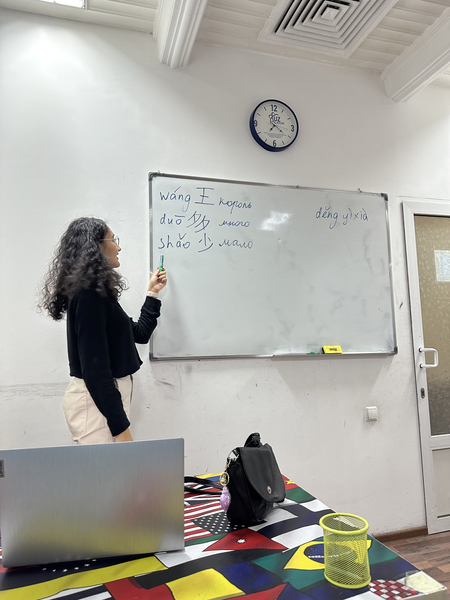 wáng 王 король
duō 多 много
shǎo 少 мало
děng yíxià